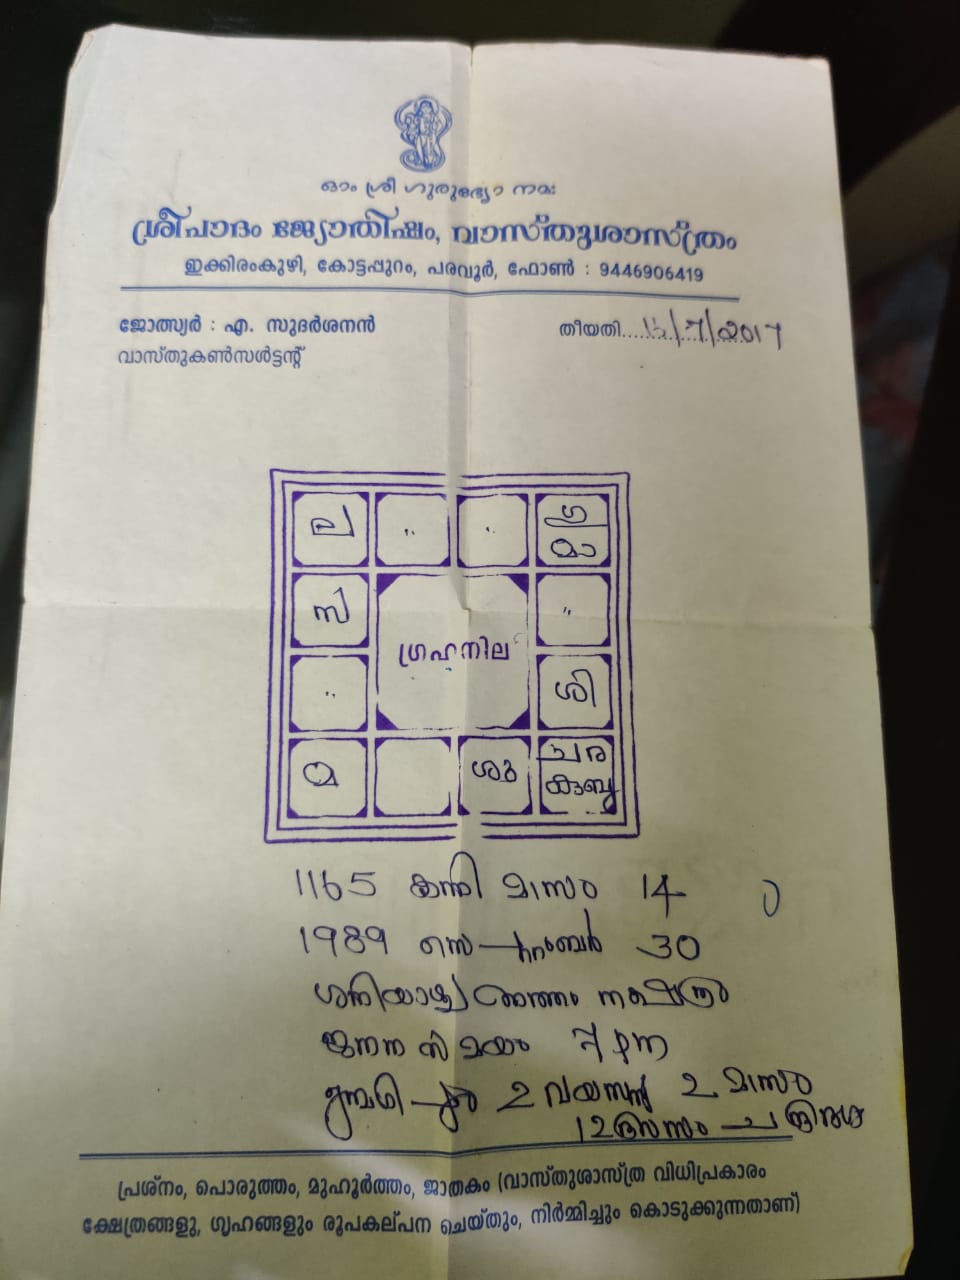 ഓം ശ്രീ ഗുരുഭ്യോ നമഃ
ശ്രീപാദം ജ്യോതിഷം, വാസ്തുശാസ്ത്രം
ഇക്കിരംകുഴി, കോട്ടപ്പുറം, പരവൂർ, ഫോൺ : 9446906419
ജോത്സ്യർ : എ. സുദർശനൻ
തീയതി.....15/7/2017
വാസ്തുകൺസൾട്ടന്റ്
ല " " ഗു
മാ
സ "
ഗ്രഹനില
" ശി
മ ശു ചര
കുബു
1165 കന്നി മാസം 14
1989 സെപ്റ്റംബർ 30
ശനിയാഴ്ച അത്തം നക്ഷത്രം
ജനന സമയം 7
2 വയസ്സ് 2 മാസം
12 ദിവസം
പ്രശ്നം, പൊരുത്തം, മുഹൂർത്തം, ജാതകം (വാസ്തുശാസ്ത്ര വിധിപ്രകാരം
ക്ഷേത്രങ്ങളു, ഗൃഹങ്ങളും രൂപകല്പന ചെയ്തും, നിർമ്മിച്ചും കൊടുക്കുന്നതാണ്)